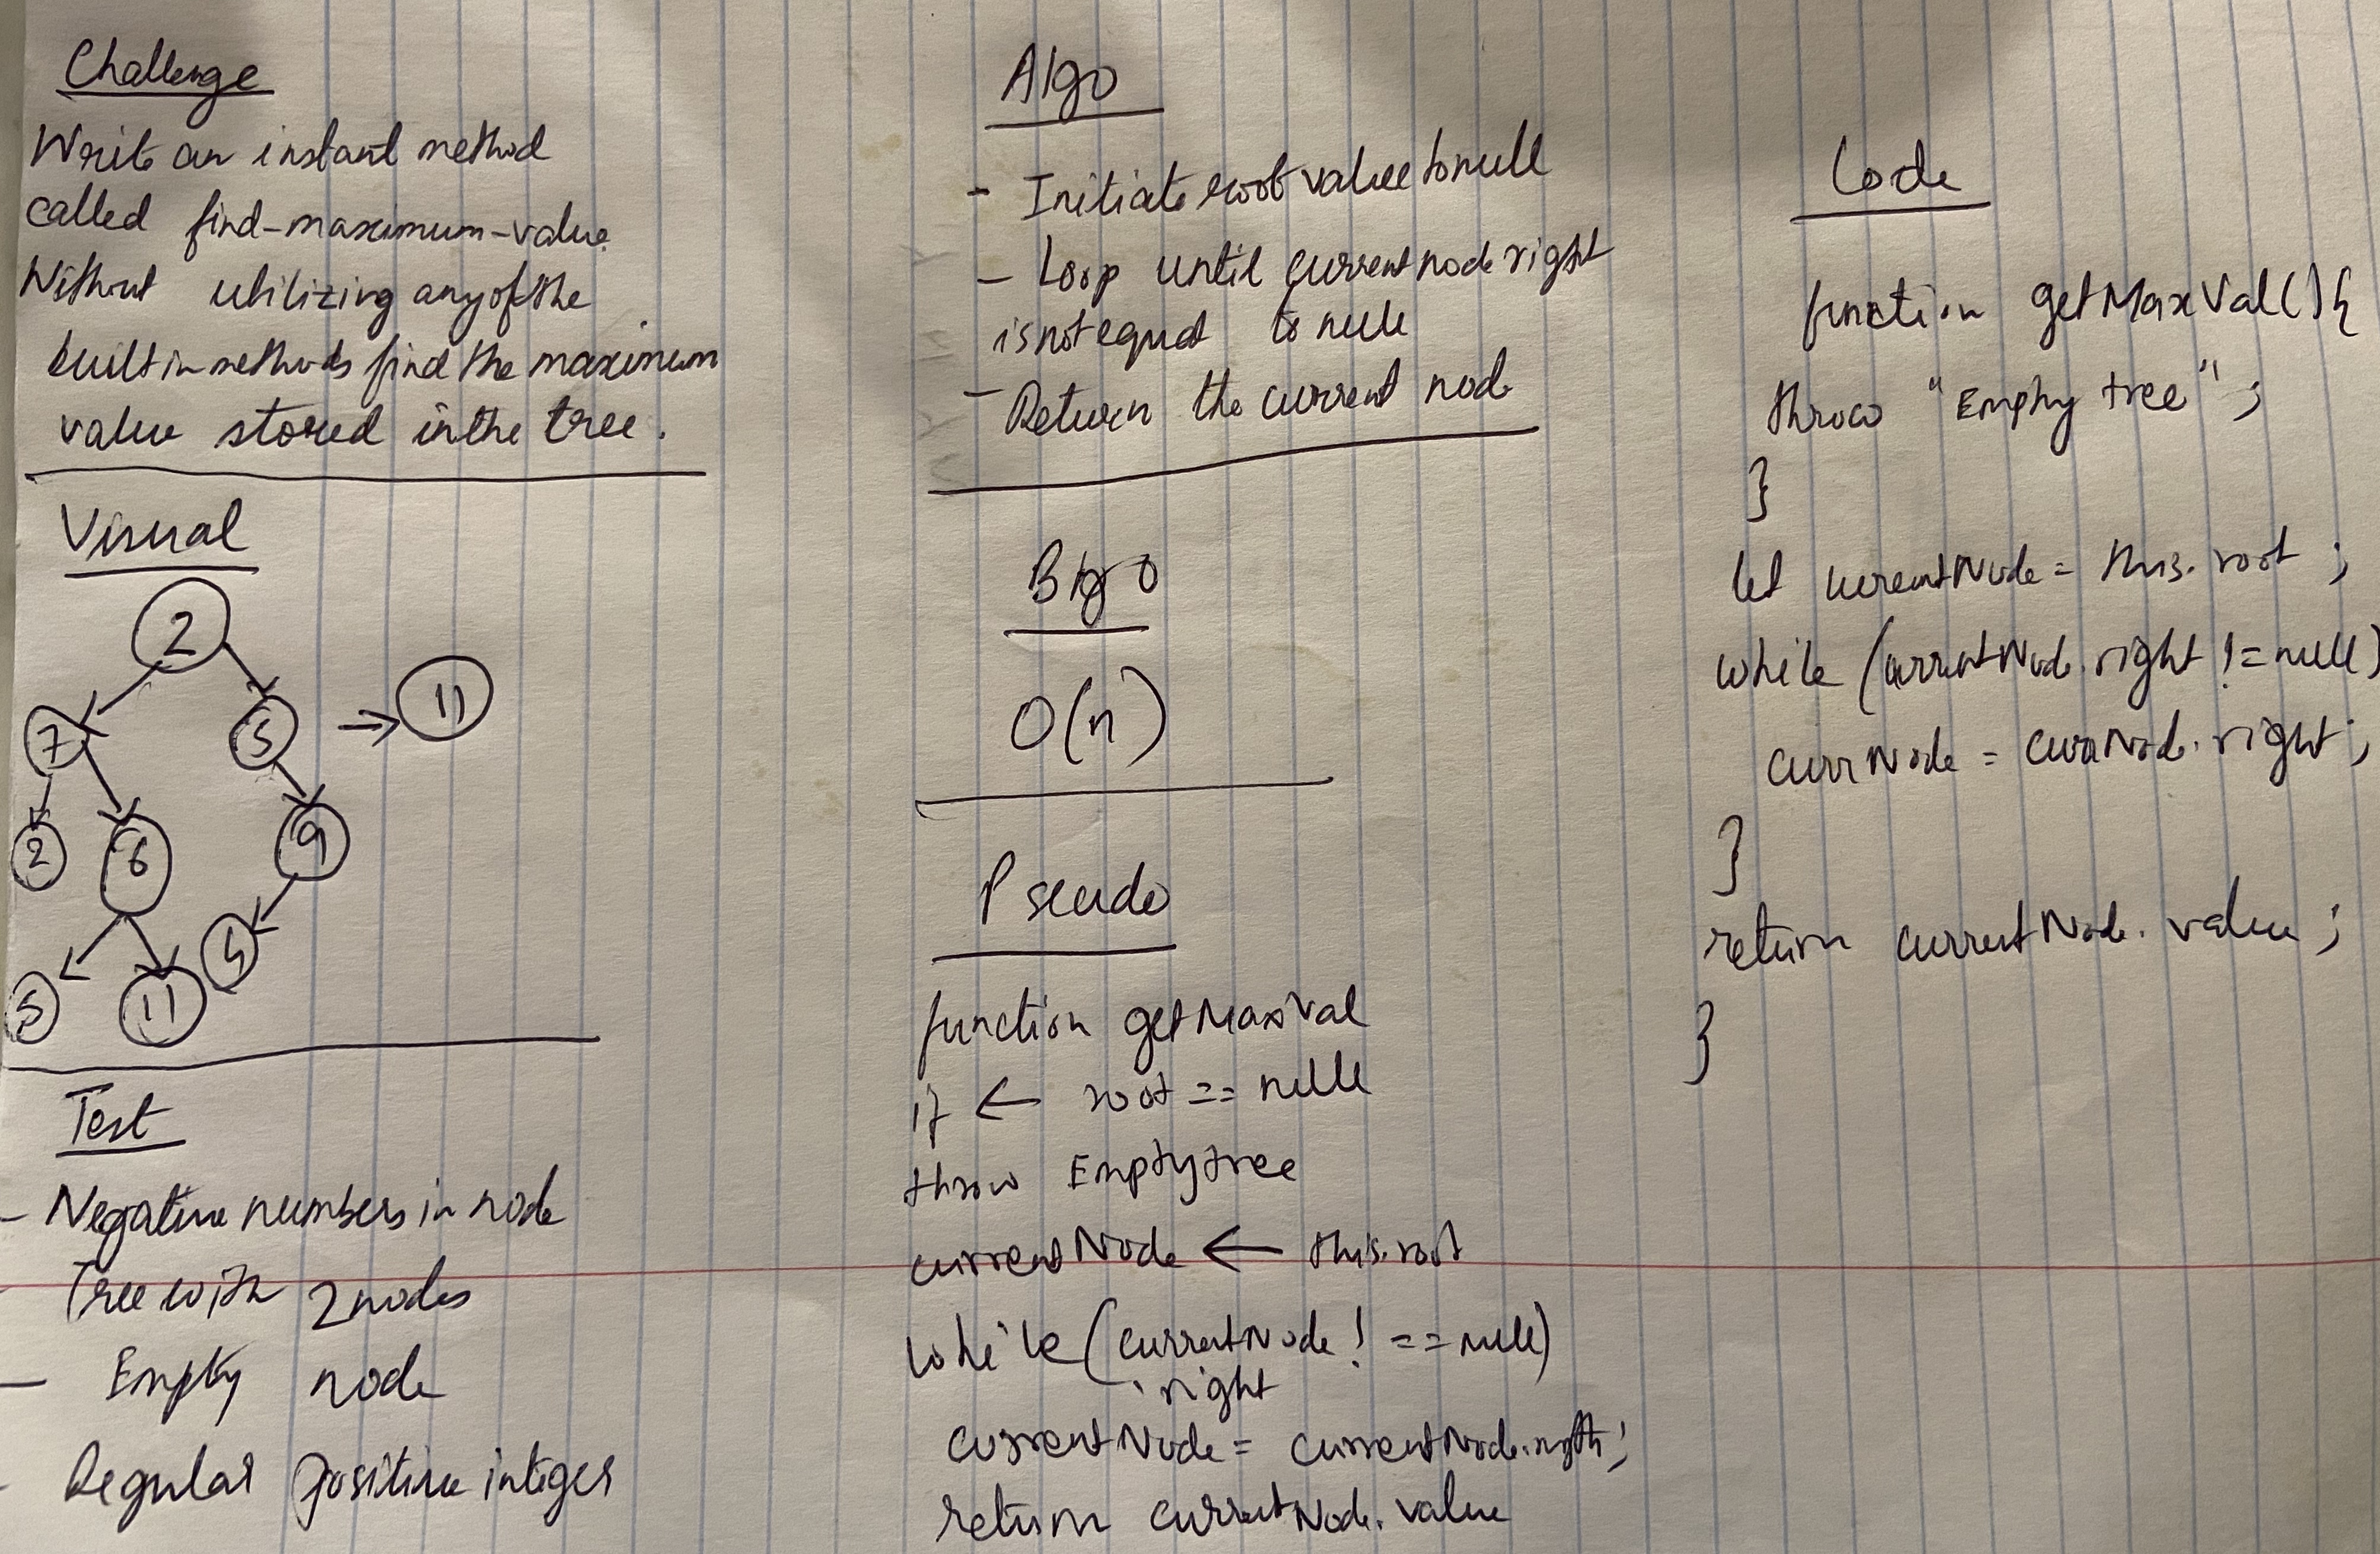 Challenge
Write an instant method
called find-maximum-value.
Without utilizing any of the
built in methods find the maximum
value stored in the tree.
Visual
2
7 5 → 11
2 6 9
5 11 4
Test
- Negative numbers in node
Tree with 2 nodes
- Empty node
- Regular positive integer
Algo
- Initiate root value to null
- Loop until current node right
is not equal to null
- Return the current node
Big O
O(n)
Pseudo
function getMaxVal
if ← root == null
throw Empty tree
currentNode ← this.root
while (currentNode ! == null)
.right
currentNode = currentNode.right;
return currentNode.value
Code
function getMaxVal() {
throw "Empty tree";
}
let currentNode = this.root;
while (currentNode.right != null)
currNode = currNode.right;
}
return currentNode.value;
}